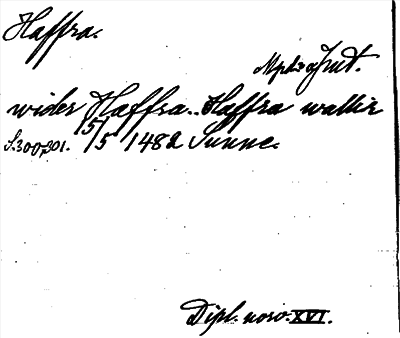 Haffra.
Mpl: Jmt.
wider Haffra.. Haffra wallir
S. 300, 301. 15/5 1482 Sunne.
Dipl. norv. XVI.